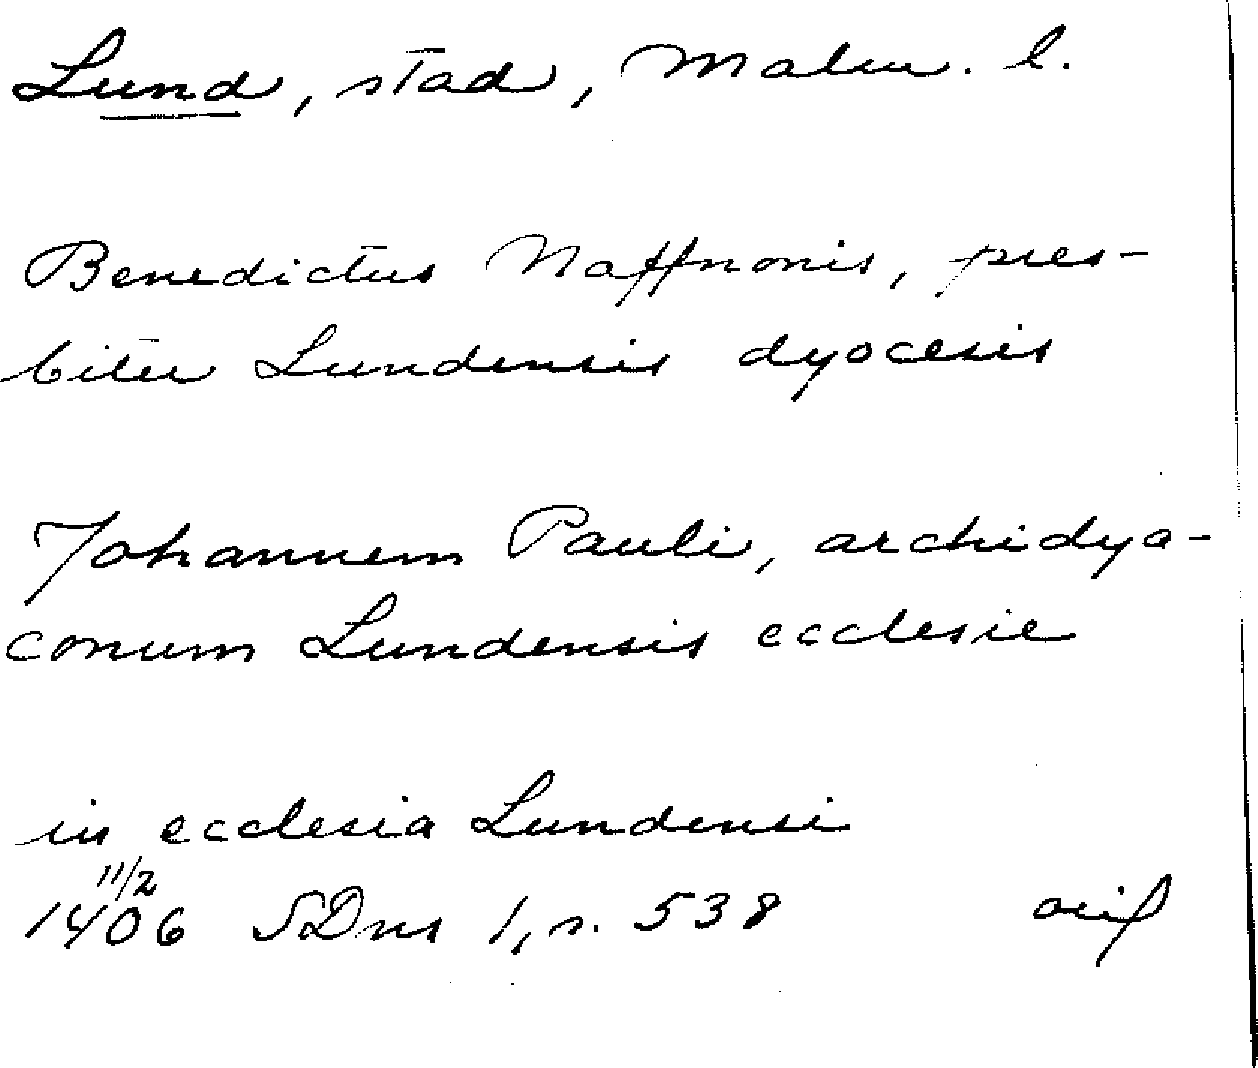 Lund, stad, Malm. l.
Benedictus Naffnonis, pres-
biter Lundensis dyocesis
Johannem Pauli, archidya-
conum Lundensis ecclesie
in ecclesia Lundensi
11/2
1406 SDns 1, s. 538 orig